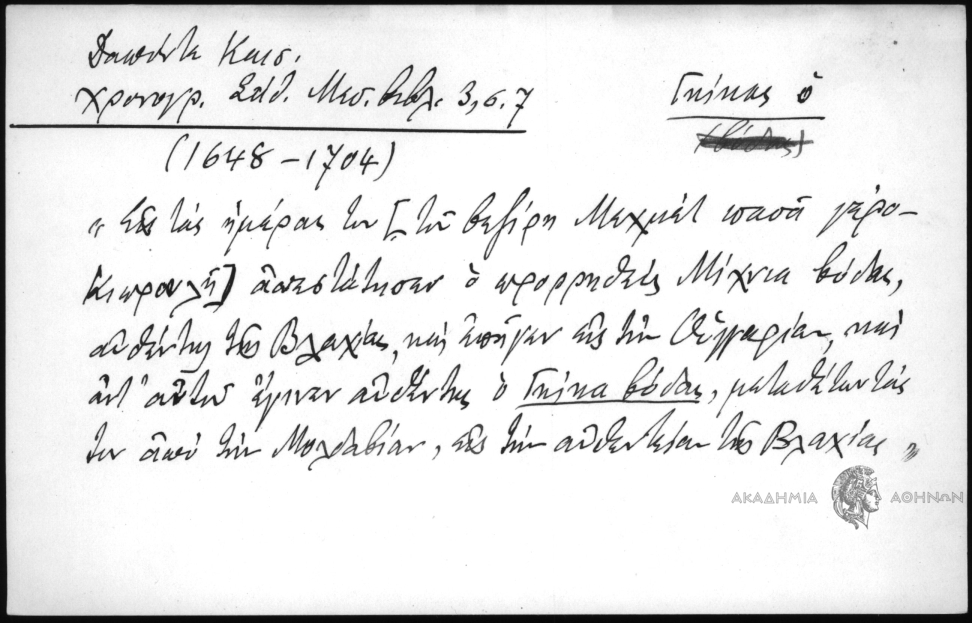 Δαπόντε Καισ.
χρονογρ. Σάθ. Μεσ. βιβλ. 3, σ. 7
Γκίκας ὁ
(βόδας)
(1648-1704)
« Εἰς τὰς ἡμέρας του [τοῦ βεζίρη Μεχμὲτ πασᾶ γέρο-
Κιοπρουλῆ] ἀπεστάτησεν ὁ προρρηθεὶς Μίχνια βόδας,
αὐθέντης τῆς Βλαχίας, καὶ ἐπῆγεν εἰς τὴν Οὐγγαρίαν, καὶ
ἀντ' αὐτοῦ ἔγινεν αὐθέντης ὁ Γκίκα βόδας, μεταθέτωντάς
τον ἀπὸ τὴν Μολδαβίαν, εἰς τὴν αὐθεντείαν τῆς Βλαχίας »
ΑΚΑΔΗΜΙΑ ΑΘΗΝΩΝ